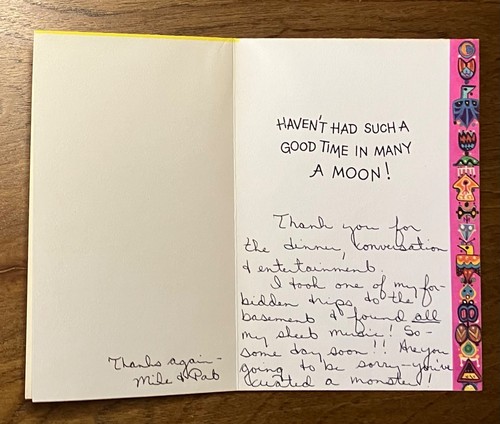 HAVEN'T HAD SUCH A
GOOD TIME IN MANY
A MOON!
Thank you for
the dinner, conversation
& entertainment.
I took one of my for-
bidden trips to the
basement & found all
my sheet music! So-
some day soon!! Are you
going to be sorry-you've
created a monster!
Thanks again-
Mile & Pat